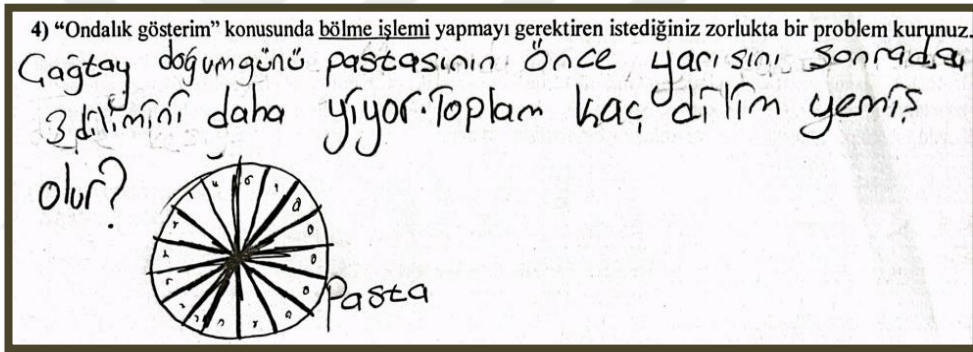 4) “Ondalık gösterim” konusunda bölme işlemi yapmayı gerektiren istediğiniz zorlukta bir problem kurunuz.
Çağtay doğumgünü pastasının önce yarısını sonrada
3 dilimini daha yiyor. Toplam kaç dilim yemiş
olur?
Pasta